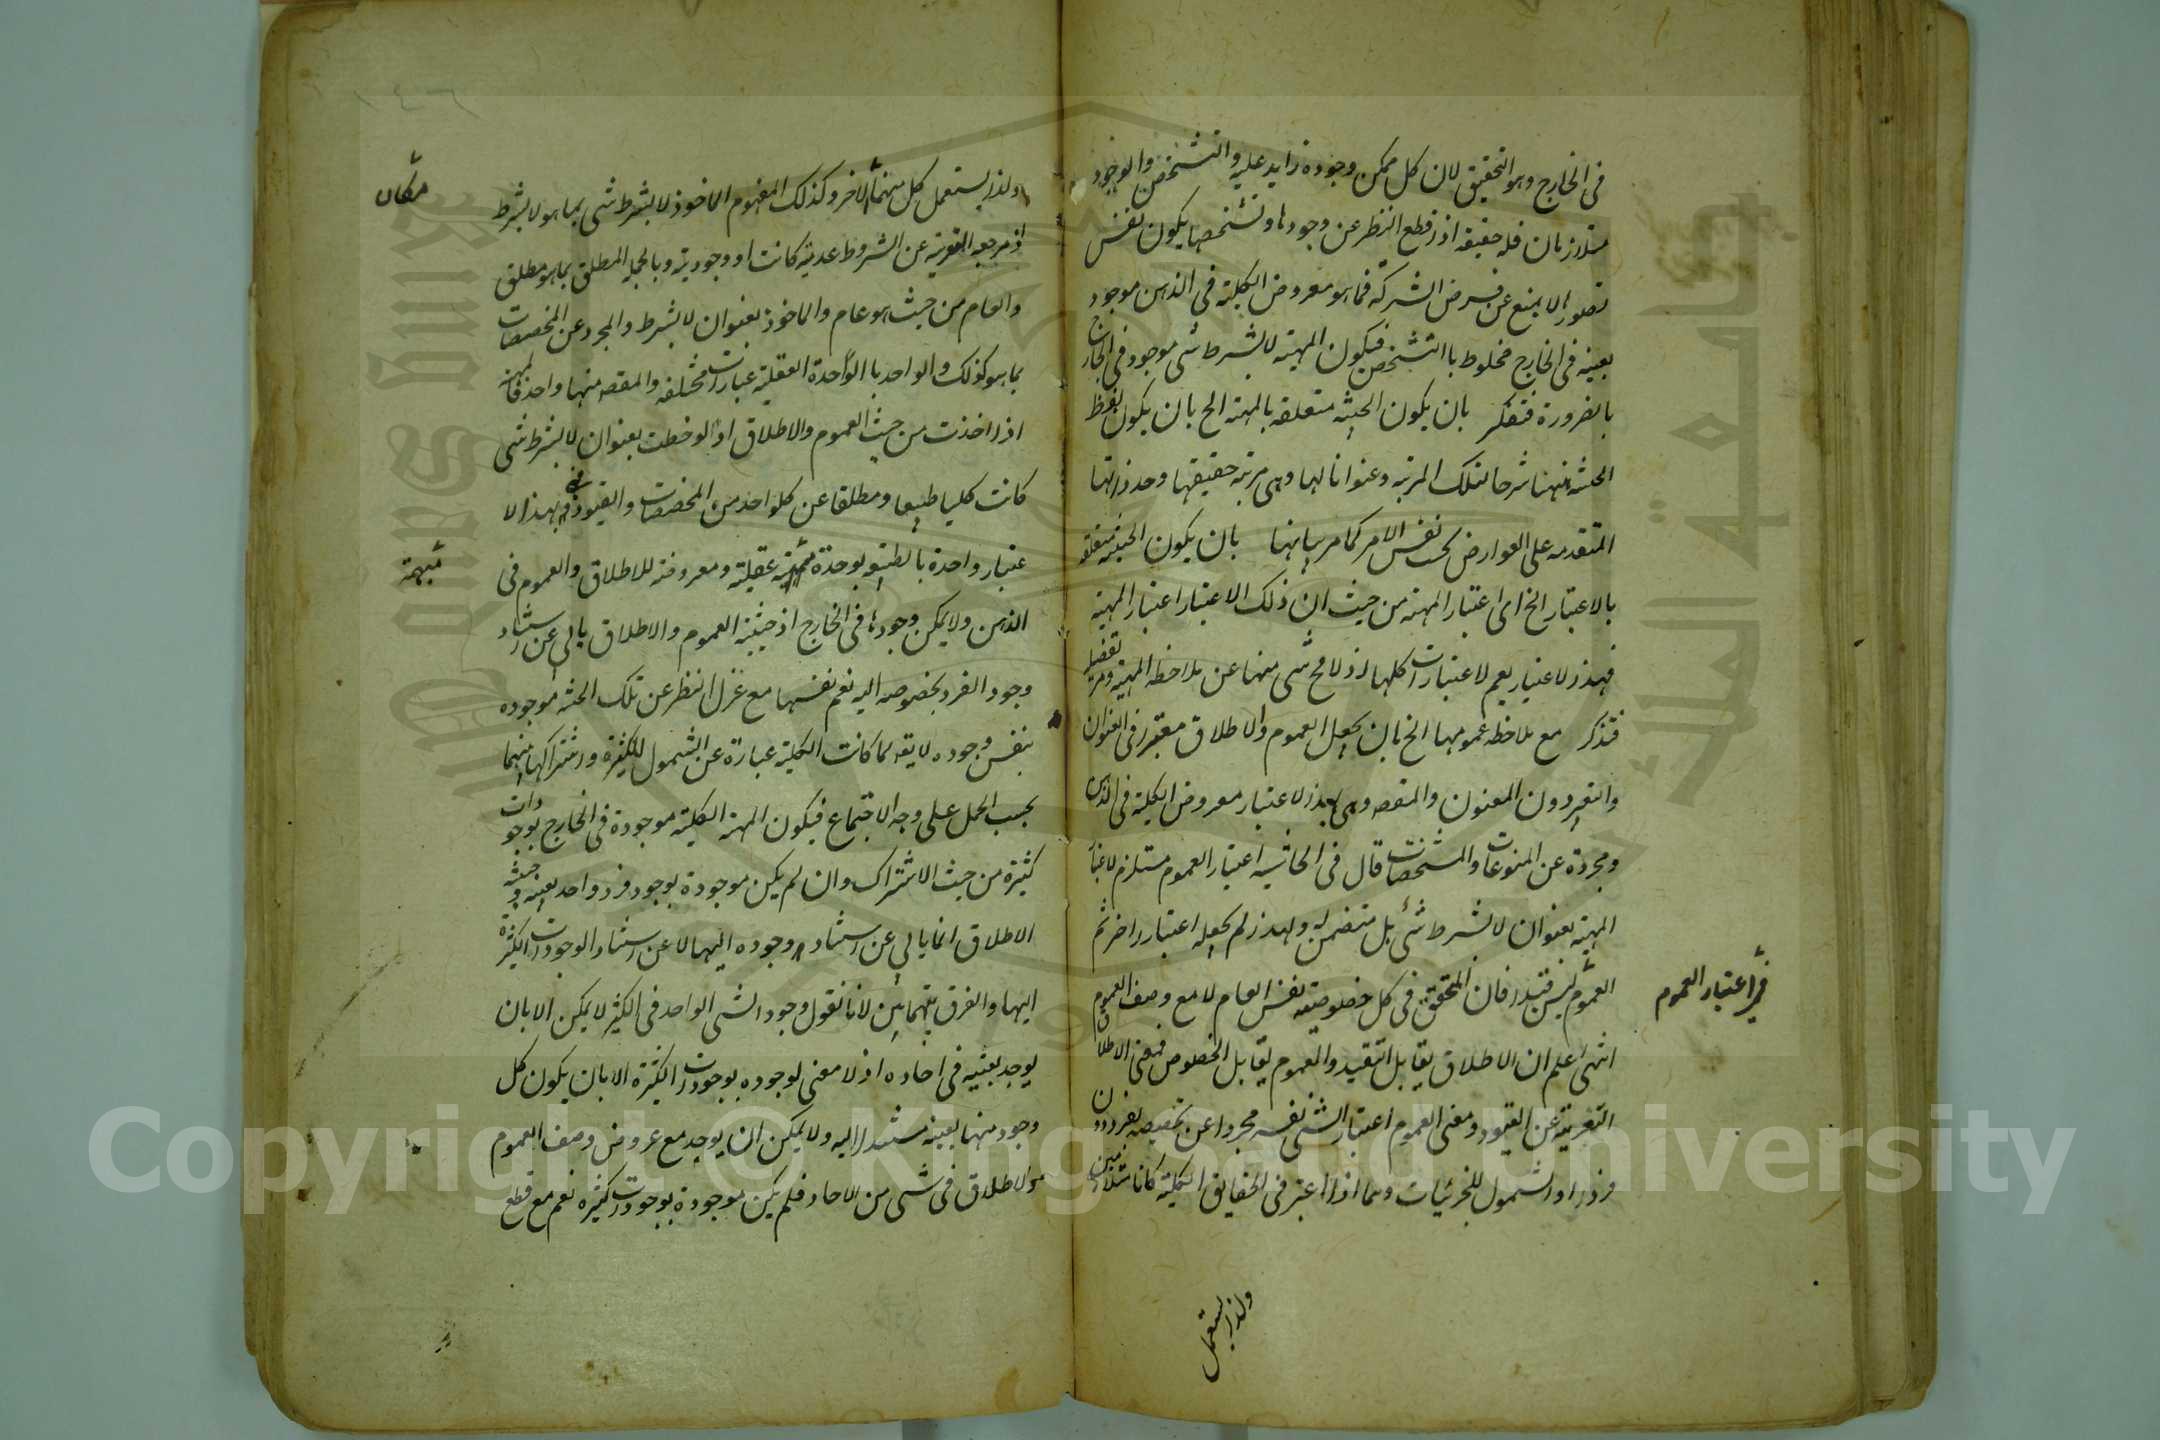 فى الخارج وهو التحقيق لان كل ممكن وجوده زايد عليه والتشخص والوجود
متلازمان فله حقيقه اذ قطع النظر عن وجودها وتشخصها يكون نفس
تصورها لا يمنع عن فرض الشركة فما هو معروض الكلية فى الذهن موجود
بعينه فى الخارج مخلوط باالتشخص فيكون المهية لا بشرط شى موجود فى الخارج
بالضرورة فتفكر بان يكون الحيثيه متعلقه بالمهية الح بان يكون لفظ
الحيثيه ههنا شرحا لتلك المرتبه وعنوانا لها وهى مرتبه حقيقتها وحد ذاتها
المتقدمه على العوارض بحسب نفس الامر كما مر بيانها بان يكون الحيثيه متعلقه
بالاعتبار الخ اى اعتبار المهية من حيث ان ذلك الاعتبار اعتبار المهية
فهذا الاعتبار يعم الاعتبارات كلها اذ لا يخ شى منها عن ملاحظه المهية ومر تفصيله
فتذكر مع ملاحظه عمومها الخ بان يجعل العموم والاطلاق معتبرا فى العنوان
والتعبير دون المعنون والمقصود وهى بهذا الاعتبار معروض الكلية فى الذهن
ومجردة عن المنوعات والمشخصات قال فى الحاشيه اعتبار العموم مستلزم لاعتبا
المهية بعنوان لا بشرط شئ بل متضمن له ولهذا لم يجعله اعتبارا اخر ثم
العموم ليس قيدا فان المتحقق فى كل خصوصيته نفس العام لا مع وصف العموم
انتهى اعلم ان الاطلاق يقابل التقييد والعموم يقابل الخصوص فمعنى الاطلاق
التعرية عن القيود ومعنى العموم اعتبار الشئ نفسه مجردا عن تخصيصه بفرد دون
فرد او الشمول للجزئيات وهما اذا اعتبر فى الحقايق الكلية كانا متلازمين
فى اعتبار العموم
ولذا يستعمل
ولذا يستعمل كل منهما مكان الاخر وكذلك المفهوم الماخوذ لا بشرط شى بما هو لا بشرط
اذ مرجعه التعرية عن الشروط عدمية كانت او وجودية وبالجمله المطلق بما هو مطلق
والعام من حيث هو عام والماخوذ بعنوان لا بشرط والمجرد عن المخصصات
بما هو كذلك والواحد باالوحدة العقلية عبارات مختلفه والمقصد منها واحد فالمهية
اذا اخذت من حيث العموم والاطلاق او لوحظت بعنوان لا بشرط شى
كانت كليا طبيعيا ومطلقا عن كلواحد من المخصصات والقيود فهى بهذا الا
عتبار واحدة بالطبيعه بوحدة مبهمة عقلية ومعروضه للاطلاق والعموم فى
الذهن ولا يمكن وجودها فى الخارج اذ حيثية العموم والاطلاق يابى عن استناد
وجود الفرد بخصوصه اليه نعم نفسها مع عزل النظر عن تلك الحيثيه موجوده
بنفس وجوده لا يقه لما كانت الكلية عبارة عن الشمول للكثيرة واشتراكها بينهما
بحسب الحمل على وجه الاجتماع فيكون المهية الكلية موجودة فى الخارج بوجودات
كثيرة من حيث الاشتراك وان لم يكن موجودة بوجود فرد واحد بعينه وحيثية
الاطلاق انما يابى عن استناد وجوده اليها لا عن استناد الوجودات الكثيرة
اليها والفرق بينهما بين لانا نقول وجود الشى الواحد فى الكثير لا يمكن الا بان
يوجد بعينه فى احاده اذ لا معنى لوجوده بوجودات الكثيرة الا بان يكون كل
وجود منها بعينه مستندا اليه ولا يمكن ان يوجد مع عروض وصف العموم
والاطلاق فى شى من الاحاد فلم يكن موجودة بوجودات كثيره نعم مع قطع
مكان
مبهمة